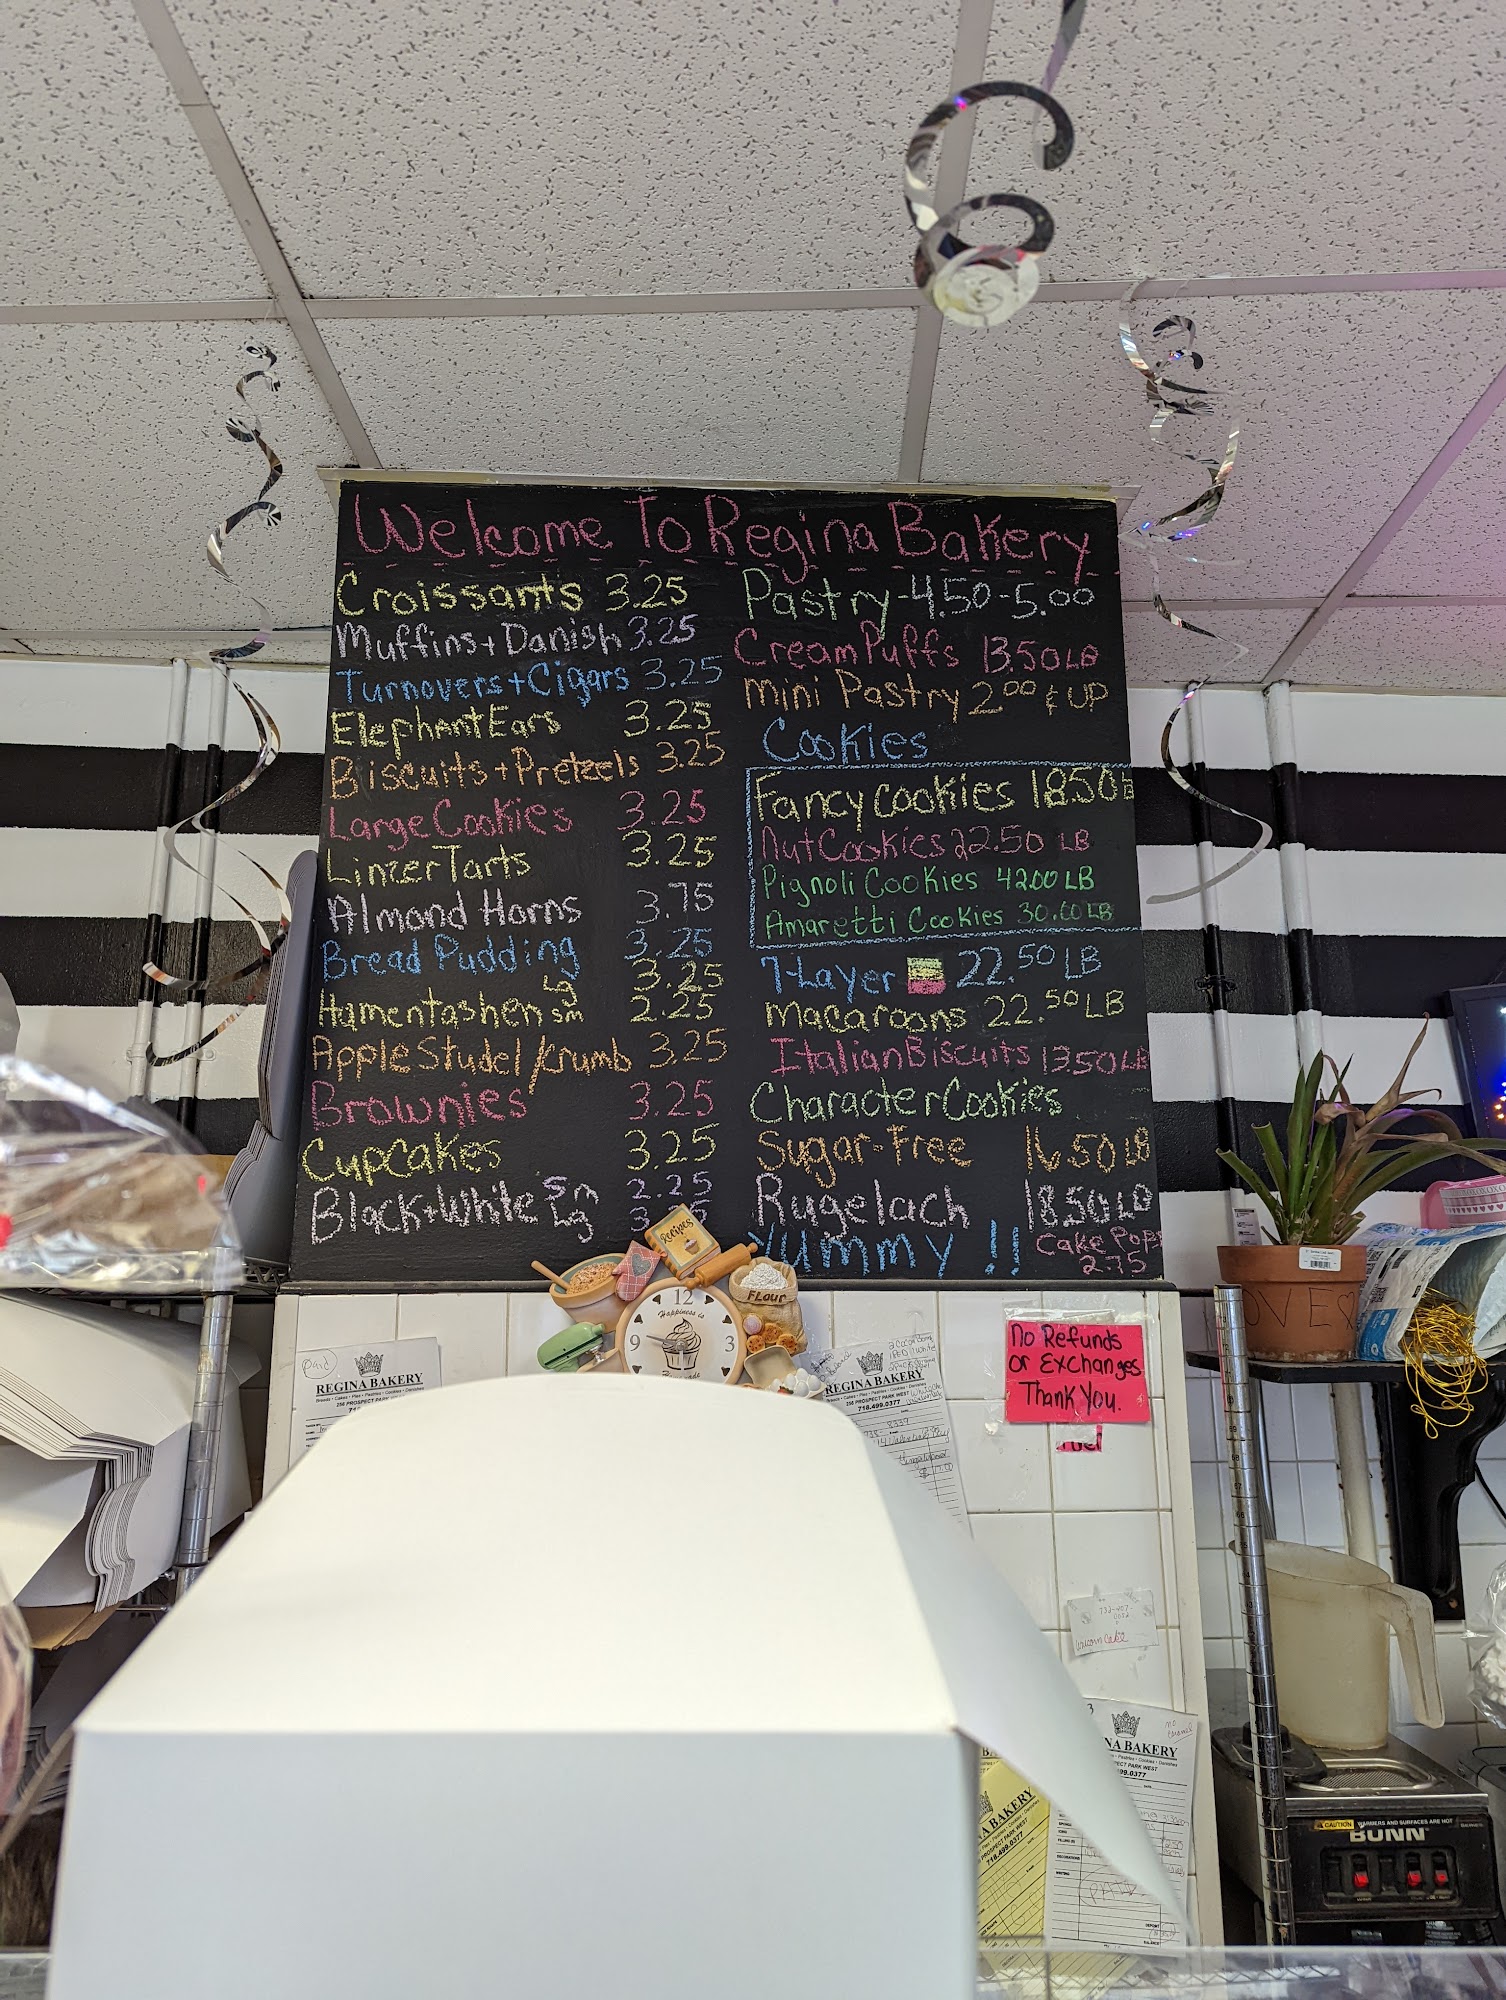 Welcome To Regina Bakery
Croissants 3.25
Muffins + Danish 3.25
Turnovers + Cigars 3.25
Elephant Ears 3.25
Biscuits + Pretzels 3.25
Large Cookies 3.25
Linzer Tarts 3.25
Almond Horns 3.75
Bread Pudding 3.25
Hamentashen Lg 3.25
sm 2.25
Apple Studel/Krumb 3.25
Brownies 3.25
Cupcakes 3.25
Black + White Sm 2.25
Lg
Pastry - 4.50 - 5.00
Cream Puffs 13.50 LB
Mini Pastry 2.00 & UP
Cookies
Fancy Cookies 18.50
Nut Cookies 22.50 LB
Pignoli Cookies 42.00 LB
Amaretti Cookies 30.00 LB
7-Layer 22.50 LB
Macaroons 22.50 LB
Italian Biscuits 13.50 LB
Character Cookies
Sugar-Free 16.50 LB
Rugelach 18.50 LB
Yummy !!
Cake Pops
2.75
Recipes
FLOUR
12
Happiness is
9
3
No Refunds
or Exchanges
Thank You.
Paid
REGINA BAKERY
REGINA BAKERY
256 PROSPECT PARK WEST
718.499.0377
LOVE
Unicorn Cake
NA BAKERY
PROSPECT PARK WEST
99.0377
A BAKERY
PROSPECT PARK WEST
718.499.0377
CAUTION WARMERS AND SURFACES ARE HOT
BUNN